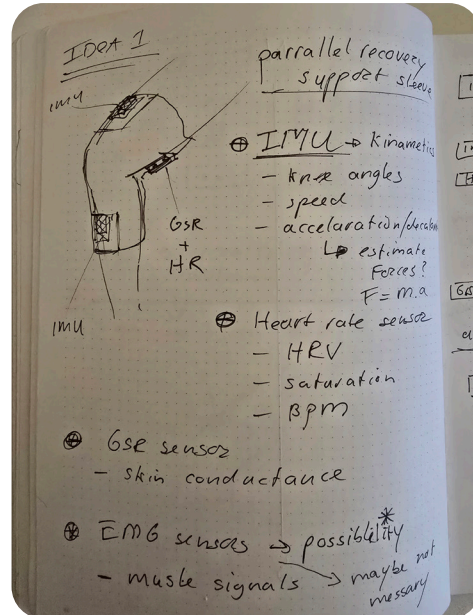 IDEA 1
parrallel recovery
support sleeve
IMU
IMU → kinametics
- knee angles
- speed
- accelaration/
↳ estimate
Forces?
F = m.a
GSR
+
HR
IMU
Heart rate sensor
- HRV
- saturation
- BPM
GSR sensor
- skin conductance
EMG sensors → possiblility*
- muskle signals → maybe not
messary